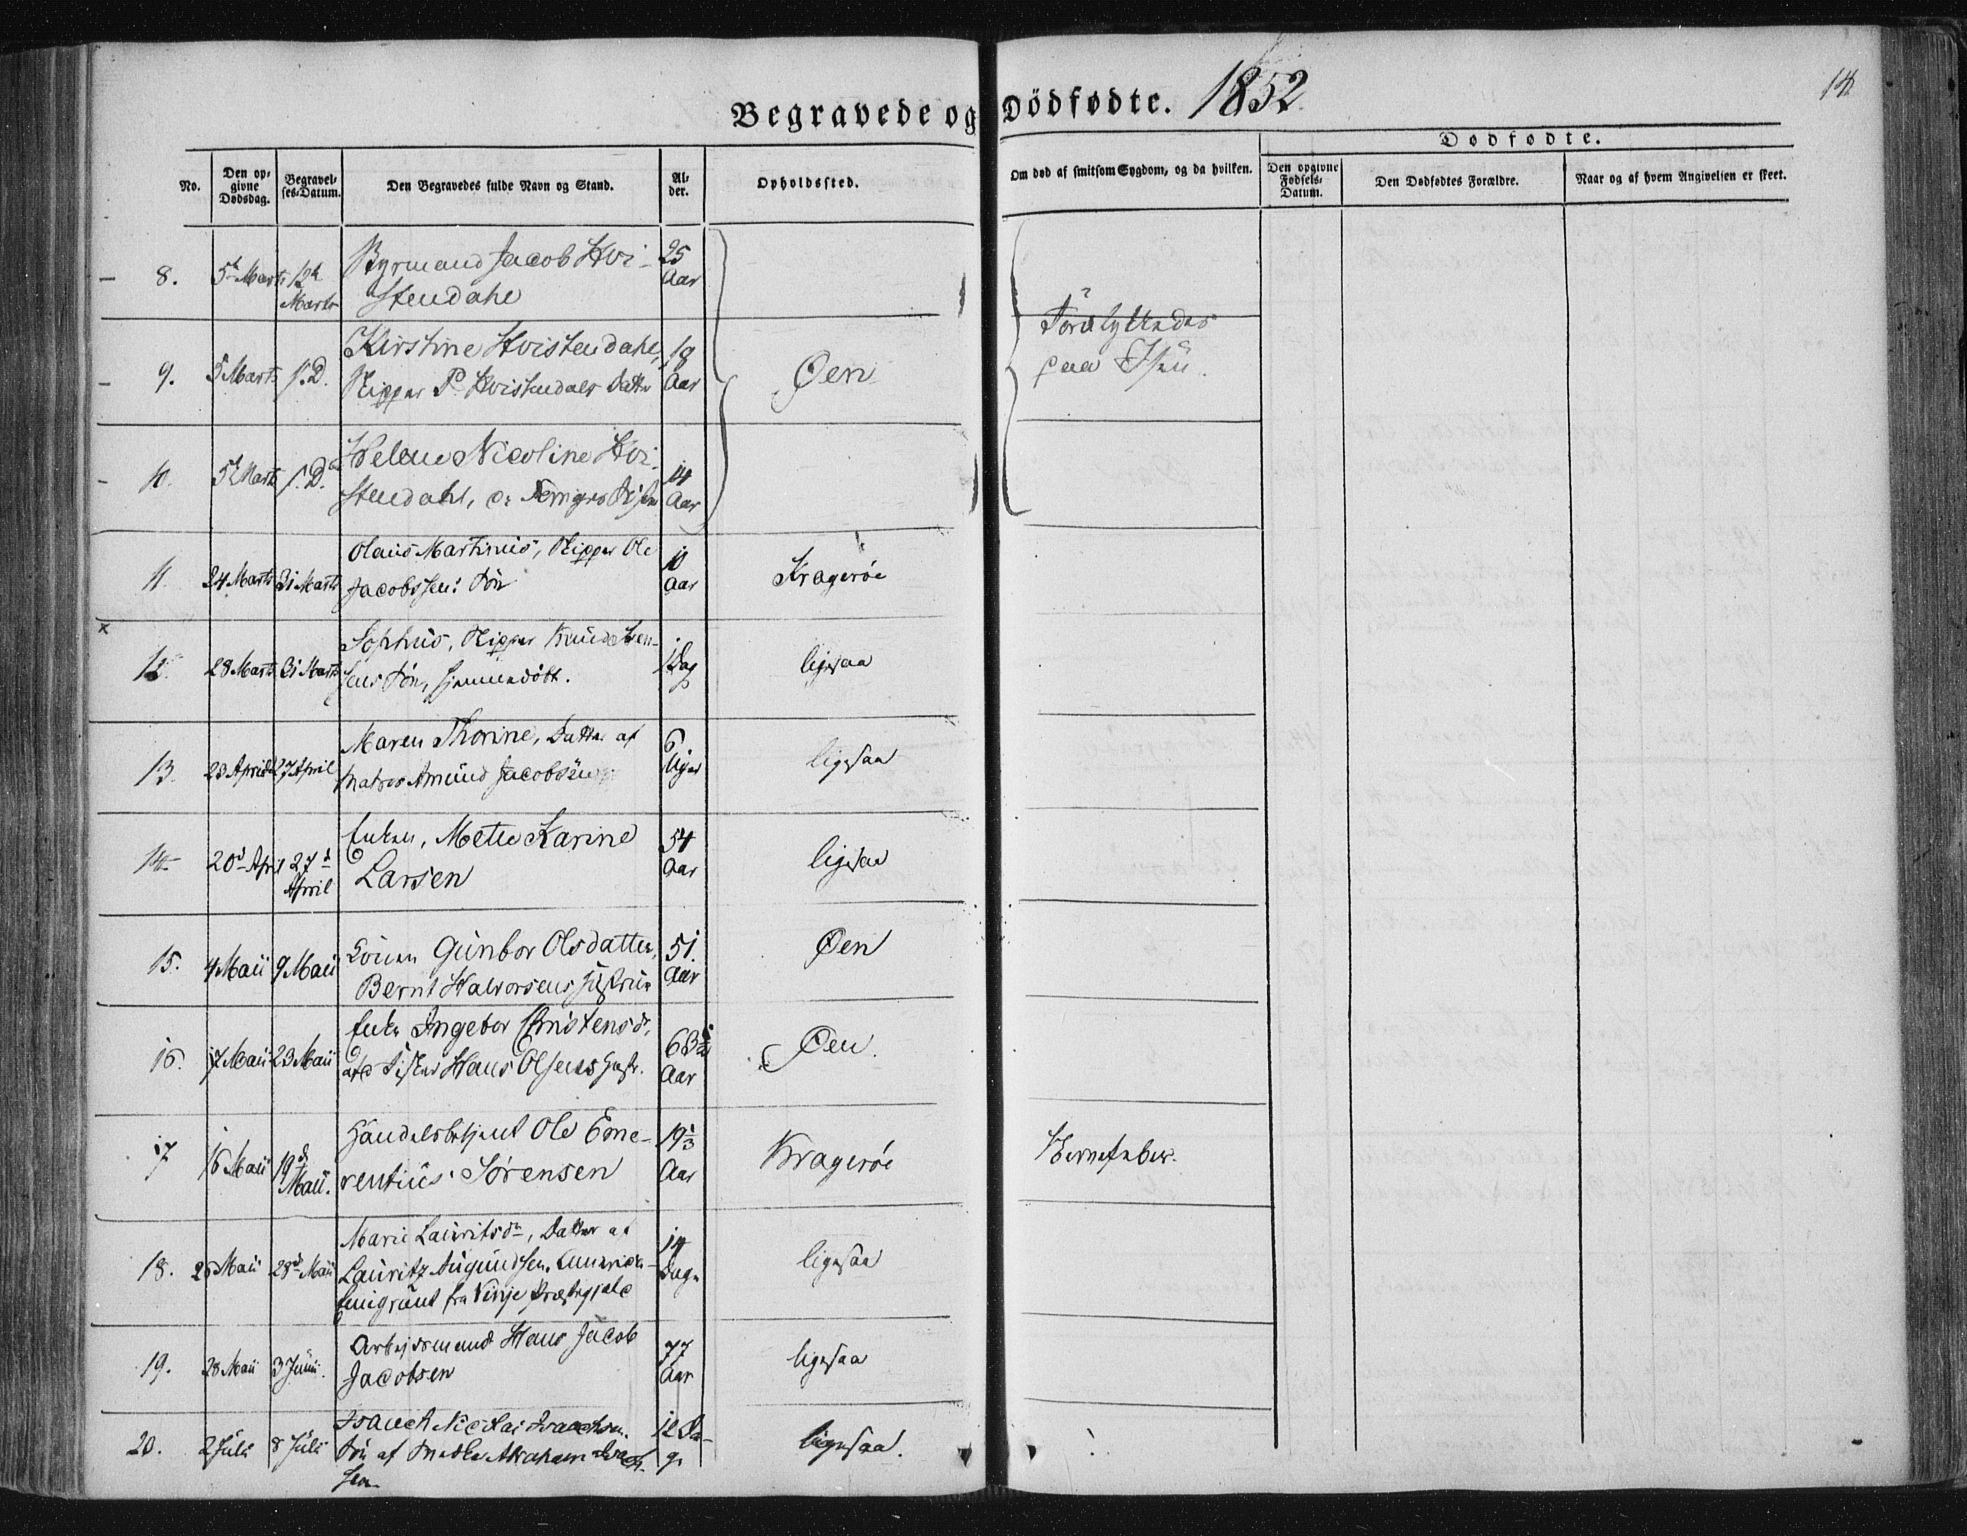 Begravede og Dödfødte. 1852
14
No.
Den op-
givne
Dødsdag.
Begravel-
ses-Datum.
Den Begravedes fulde Navn og Stand.
Al-
der.
Opholdssted.
Om død af smitsom Sygdom, og da hvilken.
Dødfødte.
Den opgivne
Fødsels-
Datum.
Den Dødfødtes Forældre.
Naar og af hvem Angivelsen er skeet.
8. 5t Marts 12te Marts
Jacob Hvi-
stendahl
25 Aar
9. 5 Marts s. D.
Kirstine Hvistendahl,
Skipper P. Hvistendals Datter
18 Aar
Øen
paa Isen.
10. 5t Marts s. D.
Helene Nicoline Hvi-
stendahl,
14 Aar
11. 24 Marts 31 Marts
Olaus Martinus, Skipper Ole
Jacobssens Søn
10 Aar
Kragerøe
12. 28 Marts 31 Marts
Sophus, Skipper Knud
sens Søn, hjemmedøbt.
1 Dag
ligesaa
13. 23 April 27 April
Maren Thorine, Datter af
Matros Amund Jacobsen
6 Uger
ligesaa
14 20d April 27d April
Enken, Mette Karine
Larsen
54 Aar
ligesaa
15. 4 Maii 9 Maii
Konen Gunbor Olsdatter,
Bernt Halvorsens Hustrue
51. Aar
Øen
16. 17 Maii 23 Maii
Enke Ingebor Christensdr,
Hans Olsens
68 Aar
Øen.
17 16 Maii 19d Maii.
Handelsbetjent Ole Eme-
rentius Sørensen
19⅓ Aar
Kragerøe
Nervefeber.
18. 26 Maii 29d Maii
Marie Lauritsdr, Datter af
Lauritz Augundsen,
Emigrant fra Vinje Præstegjeld
14 Dage
ligesaa
19. 28 Maii 3 Junii.
Arbejdsmand Hans Jacob
Jacobsen
77 Aar
ligesaa
20. 2 Juli 8 Juli
Isanch Nicolai Isaachsen.
Søn af Abraham Isach-
sen
12 Da-
ge
ligesaa.